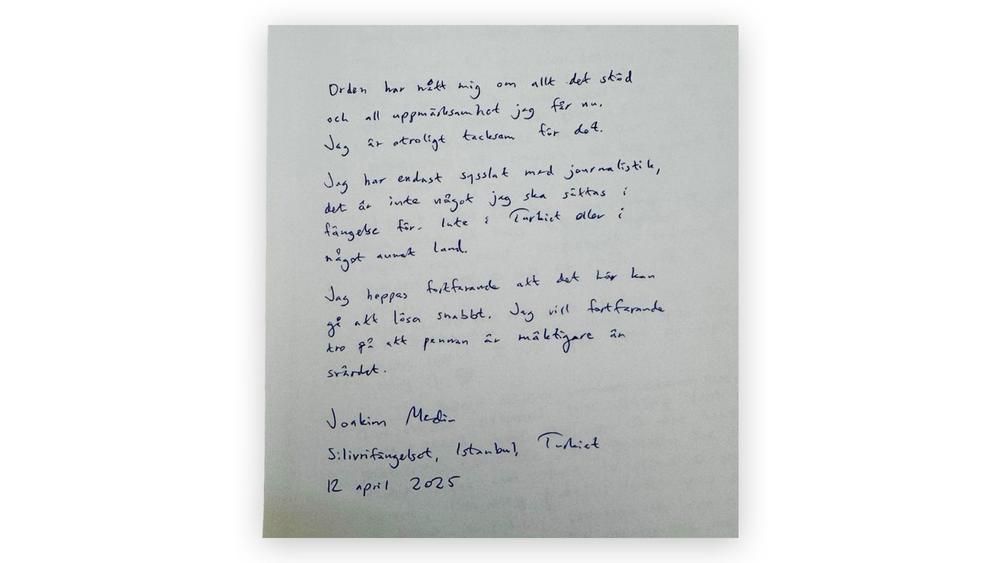 Orden har nått mig om allt det stöd
och all uppmärksamhet jag får nu.
Jag är otroligt tacksam för det.
Jag har endast sysslat med journalistik,
det är inte något jag ska sättas i
fängelse för. Inte i Turkiet eller i
något annat land.
Jag hoppas fortfarande att det här kan
gå att lösa snabbt. Jag vill fortfarande
tro på att pennan är mäktigare än
svärdet.
Joakim Medin
Silivrifängelset, Istanbul, Turkiet
12 april 2025